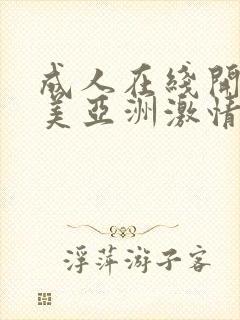 成人在綫開
美亞洲激情
浮萍游子客